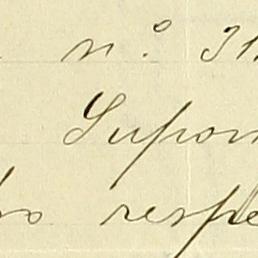 n.º 31
Supon
respe